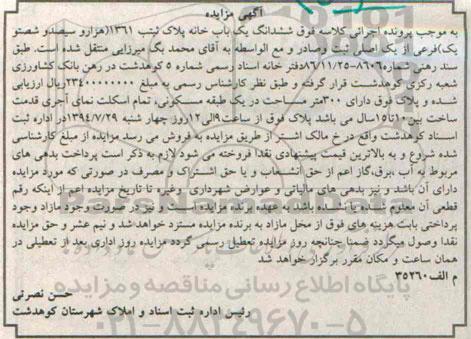 آگهی مزایده
به موجب پرونده اجرائی کلاسه فوق ششدانگ یک باب خانه پلاک ثبتی ۱۳۶۱(هزارو سیصدو شصتو
یک)فرعی از یک اصلی ثبت وصادر و مع الواسطه به آقای محمد بگ میرزایی منتقل شده است. طبق
سند رهنی شماره۸۶۰۶-۸۶/۱۱/۲۵دفتر خانه اسناد رسمی شماره ۵ کوهدشت در رهن بانک کشاورزی
شعبه رکزی کوهدشت قرار گرفته و طبق نظر کارشناس رسمی به مبلغ ۲۳۴۰۰۰۰۰۰۰ریال ارزیابی
شده و پلاک فوق دارای ۳۰۰متر مساحت در یک طبقه مسکونی، تمام اسکلت نمای آجری قدمت
ساخت بین ۱۰تا۱۵سال می باشد پلاک فوق از ساعت۹الی۱۲روز چهار شنبه ۱۳۹۴/۷/۲۹در اداره ثبت
اسناد کوهدشت واقع در خ مالک اشتر از طریق مزایده به فروش می رسد مزایده از مبلغ کارشناسی
شده شروع و به بالاترین قیمت پیشنهادی نقدا فروخته می شود لازم به ذکر است پرداخت بدهی های
مربوط به آب ،برق،گاز اعم از حق انشعاب و یا حق اشتراک و مصرف در صورتی که مورد مزایده
دارای آن باشد و نیز بدهی های مالیاتی و عوارض شهرداری وغیره تا تاریخ مزایده اعم از اینکه رقم
قطعی آن معلوم شده یا نشده باشد به عهده برنده مزایده است و نیز در صورت وجود مازاد وجوه
پرداختی بابت هزینه های فوق از محل مازاد به برنده مزایده مسترد خواهد شد و نیم عشر و حق مزایده
نقدا وصول میگردد ضمنا چنانچه روز مزایده تعطیل رسمی گردد مزایده روز اداری بعد از تعطیلی در
همان ساعت و مکان مقرر برگزار خواهد شد
م الف ۳۵۲۶۰
حسن نصرتی
رئیس اداره ثبت اسناد و املاک شهرستان کوهدشت
پایگاه اطلاع رسانی مناقصه ومزایده
۰۲۱-۸۸۳۴۹۶۷۰-۵